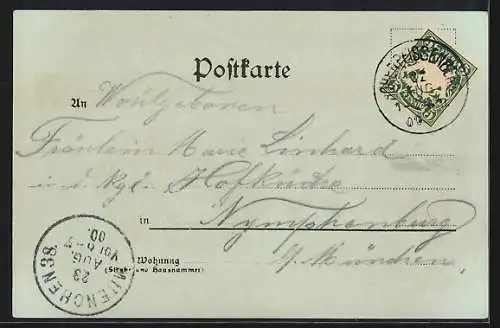 Postkarte
An Wohlgeboren
Fräulein Marie Linhard
i. d. Kgl. Hofküche
in Nymphenburg
b/ München.
Wohnung
(Straße und Hausnummer)
MUENCHEN 38.
23
AUG.
00.